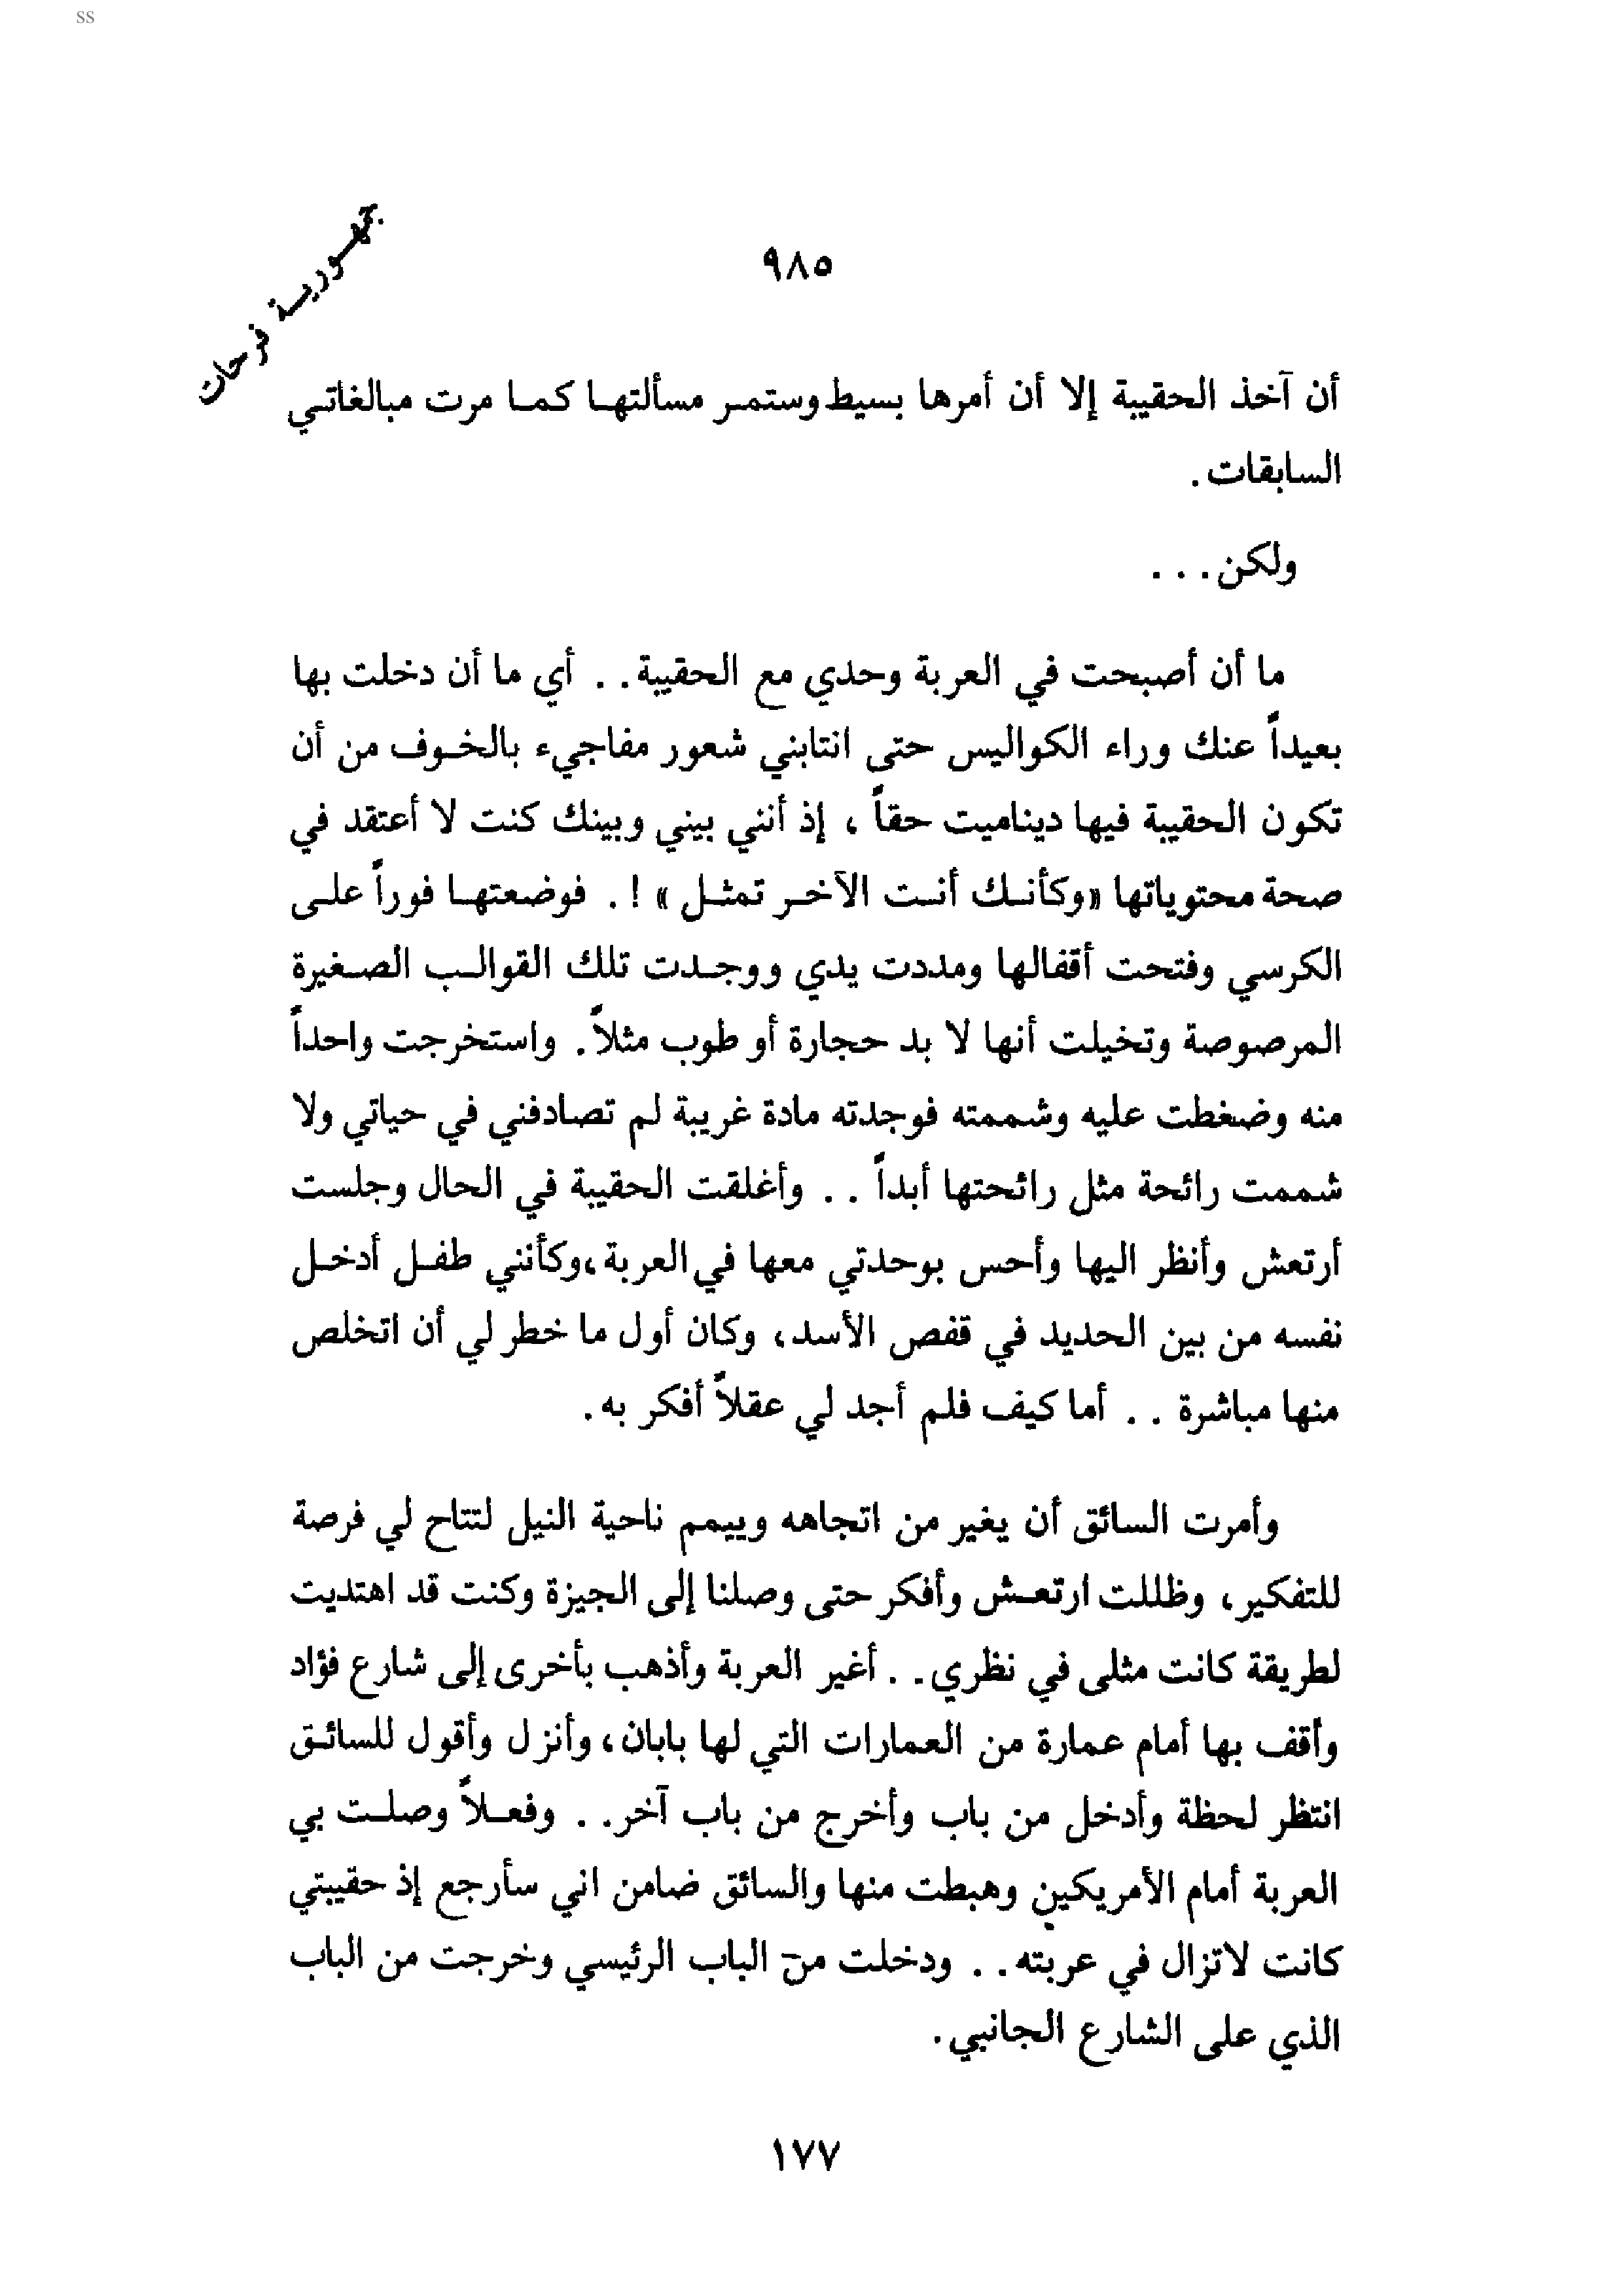 ss
جمهورية فرحات
٩٨٥
أن آخذ الحقيبة إلا أن أمرها بسيط وستمر مسألتها كما مرت مبالغاتي
السابقات .
ولكن . . .
ما أن أصبحت في العربة وحدي مع الحقيبة . . أي ما أن دخلت بها
بعيداً عنك وراء الكواليس حتى انتابني شعور مفاجيء بالخوف من أن
تكون الحقيبة فيها ديناميت حقاً ، إذ أنني بيني وبينك كنت لا أعتقد في
صحة محتوياتها «وكأنك أنت الآخر تمثل » ! . فوضعتها فوراً على
الكرسي وفتحت أقفالها ومددت يدي ووجدت تلك القوالب الصغيرة
المرصوصة وتخيلت أنها لا بد حجارة أو طوب مثلاً . واستخرجت واحداً
منه وضغطت عليه وشممته فوجدته مادة غريبة لم تصادفني في حياتي ولا
شممت رائحة مثل رائحتها أبداً . . وأغلقت الحقيبة في الحال وجلست
أرتعش وأنظر اليها وأحس بوحدتي معها في العربة ،وكأنني طفل أدخل
نفسه من بين الحديد في قفص الأسد ، وكان أول ما خطر لي أن اتخلص
منها مباشرة . . أما كيف فلم أجد لي عقلاً أفكر به .
وأمرت السائق أن يغير من اتجاهه وييمم ناحية النيل لتتاح لي فرصة
للتفكير ، وظللت ارتعش وأفكر حتى وصلنا إلى الجيزة وكنت قد اهتديت
لطريقة كانت مثلى في نظري . . أغير العربة وأذهب بأخرى إلى شارع فؤاد
وأقف بها أمام عمارة من العمارات التي لها بابان ، وأنزل وأقول للسائق
انتظر لحظة وأدخل من باب وأخرج من باب آخر . . وفعلاً وصلت بي
العربة أمام الأمريكين وهبطت منها والسائق ضامن اني سأرجع إذ حقيبتي
كانت لاتزال في عربته . . ودخلت من الباب الرئيسي وخرجت من الباب
الذي على الشارع الجانبي .
١٧٧